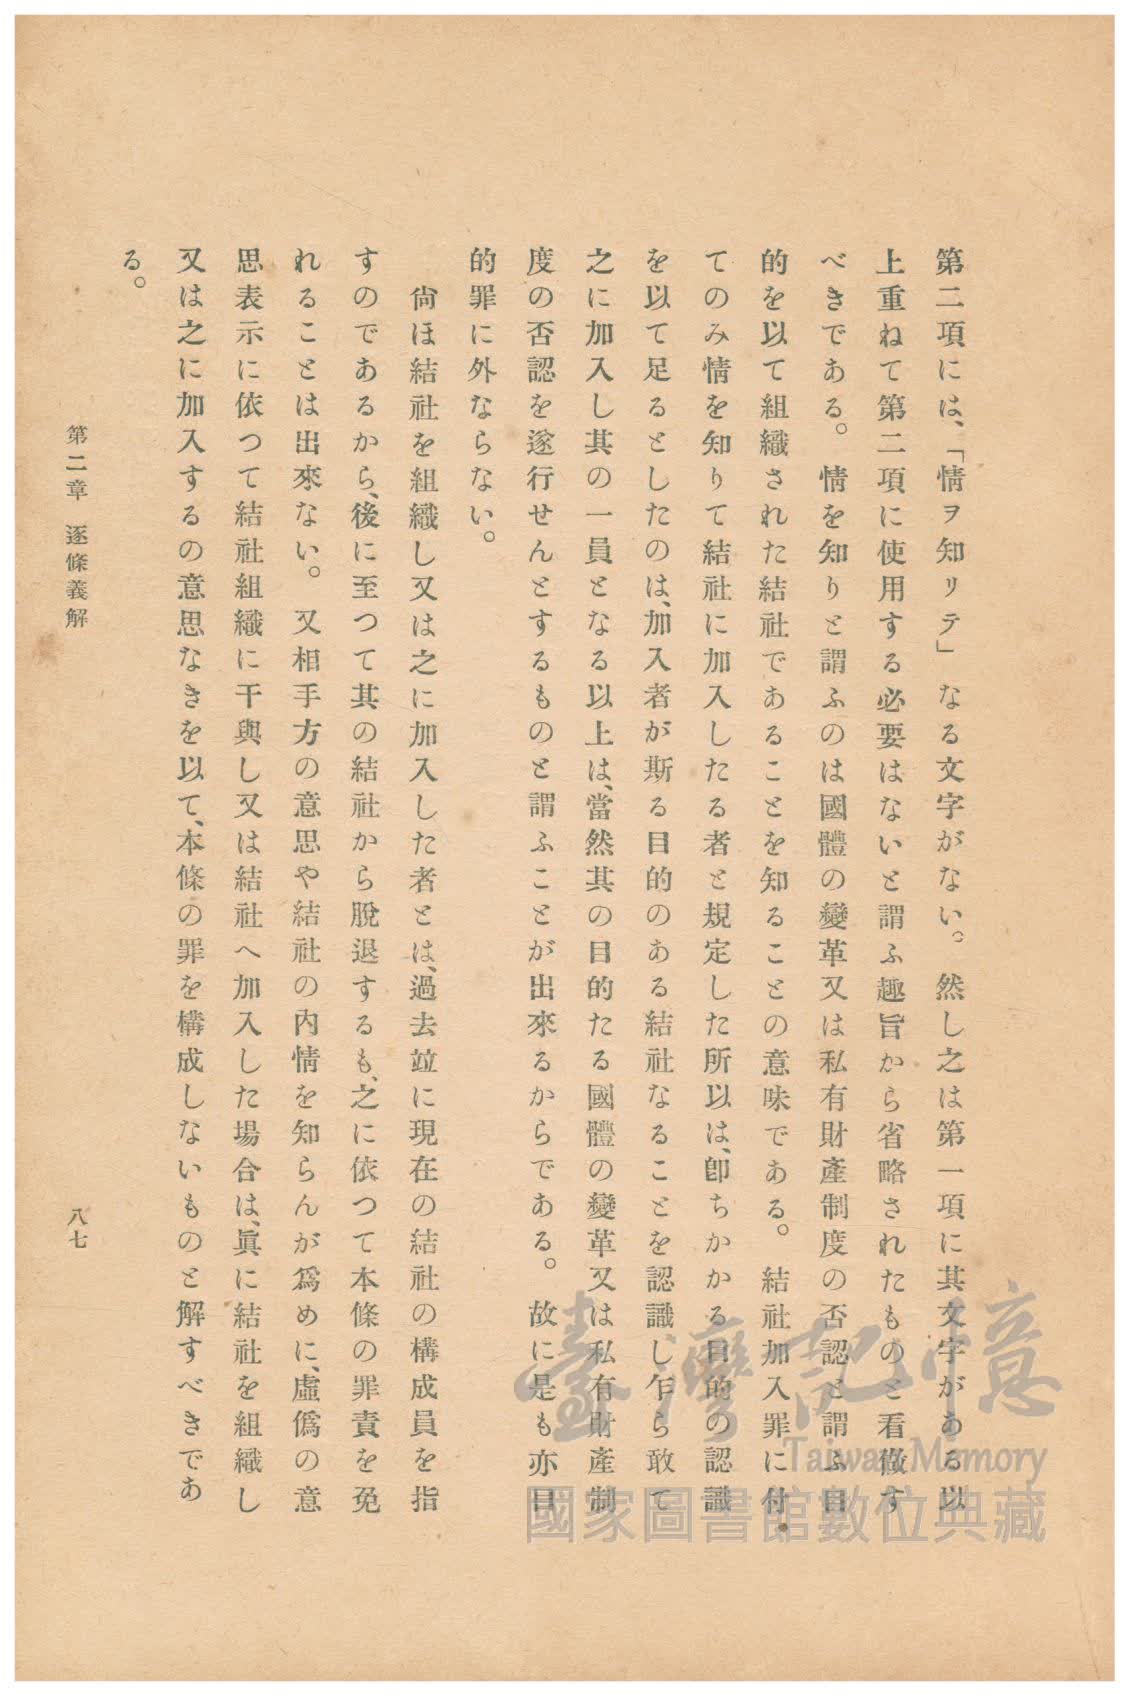 第二項には、「情ヲ知リテ」なる文字がない。然し之は第一項に其文字がある以
上重ねて第二項に使用する必要はないと謂ふ趣旨から省略されたものと看做す
べきである。情を知りと謂ふのは國體の變革又は私有財產制度の否認と謂ふ目
的を以て組織された結社であることを知ることの意味である。結社加入罪に付
てのみ情を知りて結社に加入したる者と規定した所以は、卽ちかかる目的の認識
を以て足るとしたのは、加入者が斯る目的のある結社なることを認識し乍ら敢て
之に加入し其の一員となる以上は、當然其の目的たる國體の變革又は私有財產制
度の否認を遂行せんとするものと謂ふことが出來るからである。故に是も亦目
的罪に外ならない。
尙ほ結社を組織し又は之に加入した者とは、過去竝に現在の結社の構成員を指
すのであるから、後に至つて其の結社から脫退するも、之に依つて本條の罪責を免
れることは出來ない。又相手方の意思や結社の內情を知らんが爲めに、虛僞の意
思表示に依つて結社組織に干與し又は結社へ加入した場合は、眞に結社を組織し
又は之に加入するの意思なきを以て、本條の罪を構成しないものと解すべきであ
る。
第二章 逐條義解
八七
臺灣記憶
Taiwan Memory
國家圖書館數位典藏